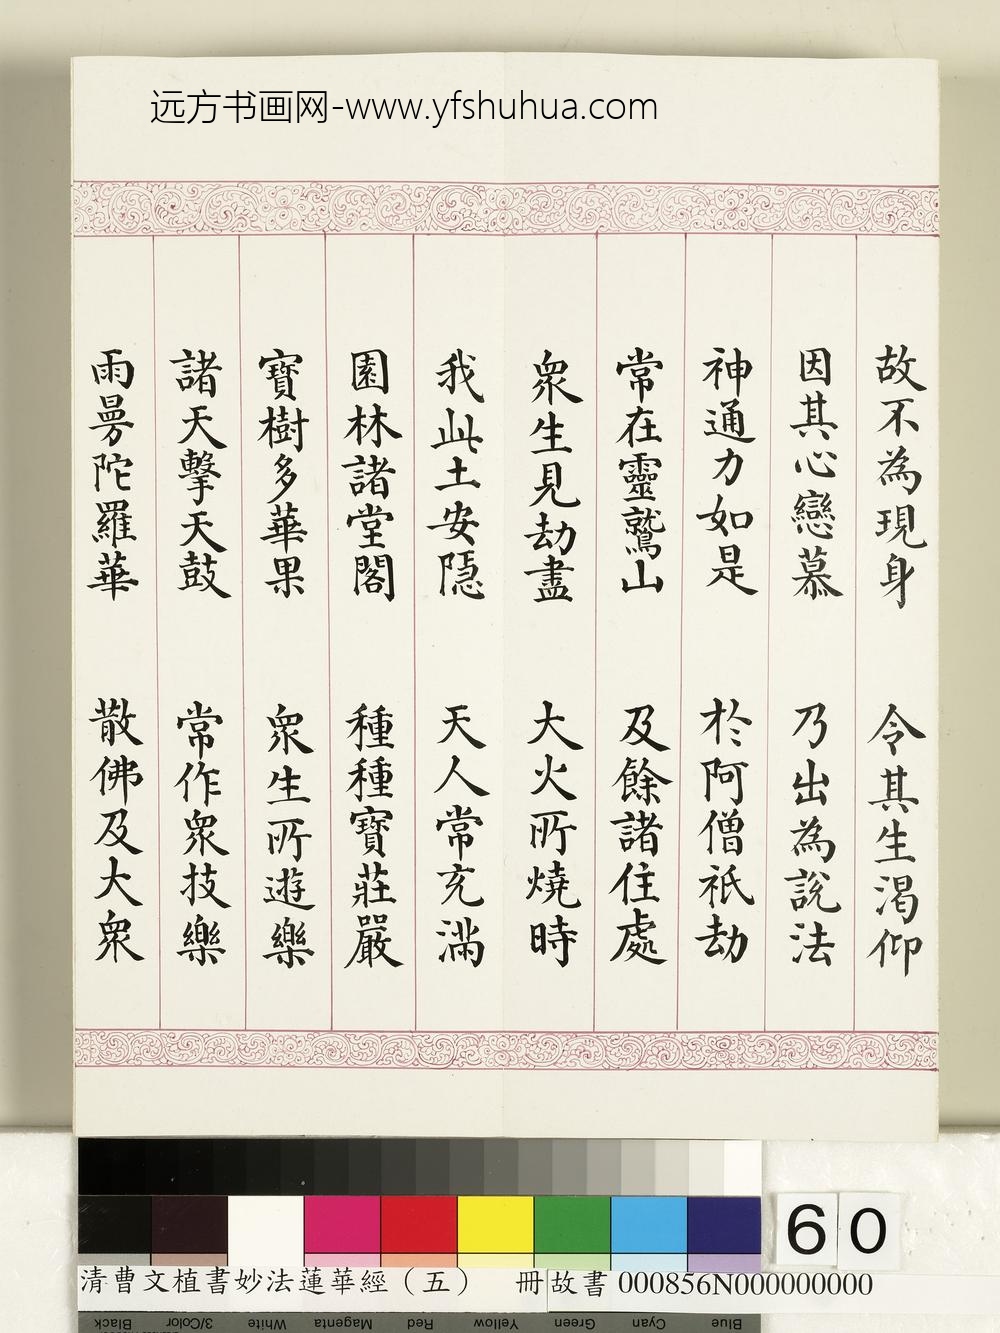 远方书画网-www.yfshuhua.com
故不為現身 令其生渴仰
因其心戀慕 乃出為說法
神通力如是 於阿僧祇劫
常在靈鷲山 及餘諸住處
衆生見劫盡 大火所燒時
我此土安隱 天人常充滿
園林諸堂閣 種種寶莊嚴
寶樹多華果 衆生所遊樂
諸天擊天鼓 常作衆技樂
雨曼陀羅華 散佛及大衆
60
清曹文植書妙法蓮華經（五） 冊 故書 000856N000000000
Black 3/Color White Magenta Red Yellow Green Cyan Blue